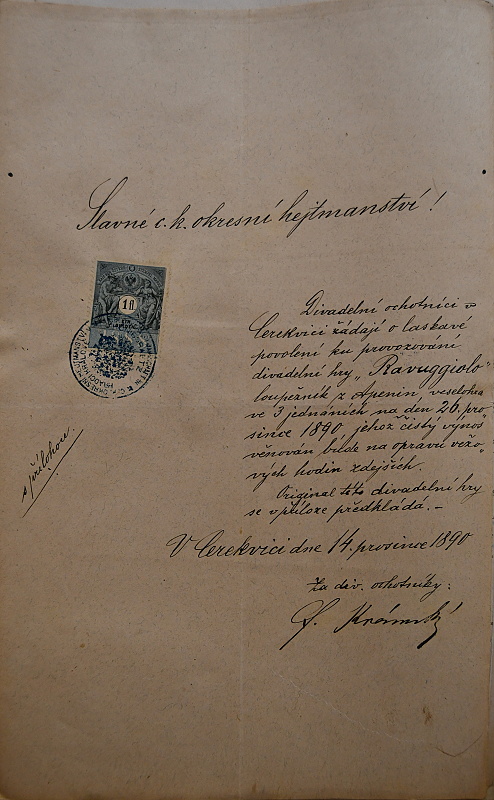 Slavné c. k. okresní hejtmanství!
1 fl
Divadelní ochotníci v
Cerekvici žádají o laskavé
povolení ku provozování
divadelní hry „Ravuggiolo“
loupežník z Apenin, veselohra
ve 3 jednáních na den 26. pro-
since 1890 jehož čistý výnos
věnován bude na opravu věžo-
vých hodin zdejších.
Original této divadelní hry
se v příloze předkládá. –
s přílohou.
V Cerekvici dne 14. prosince 1890
Za div. ochotníky: